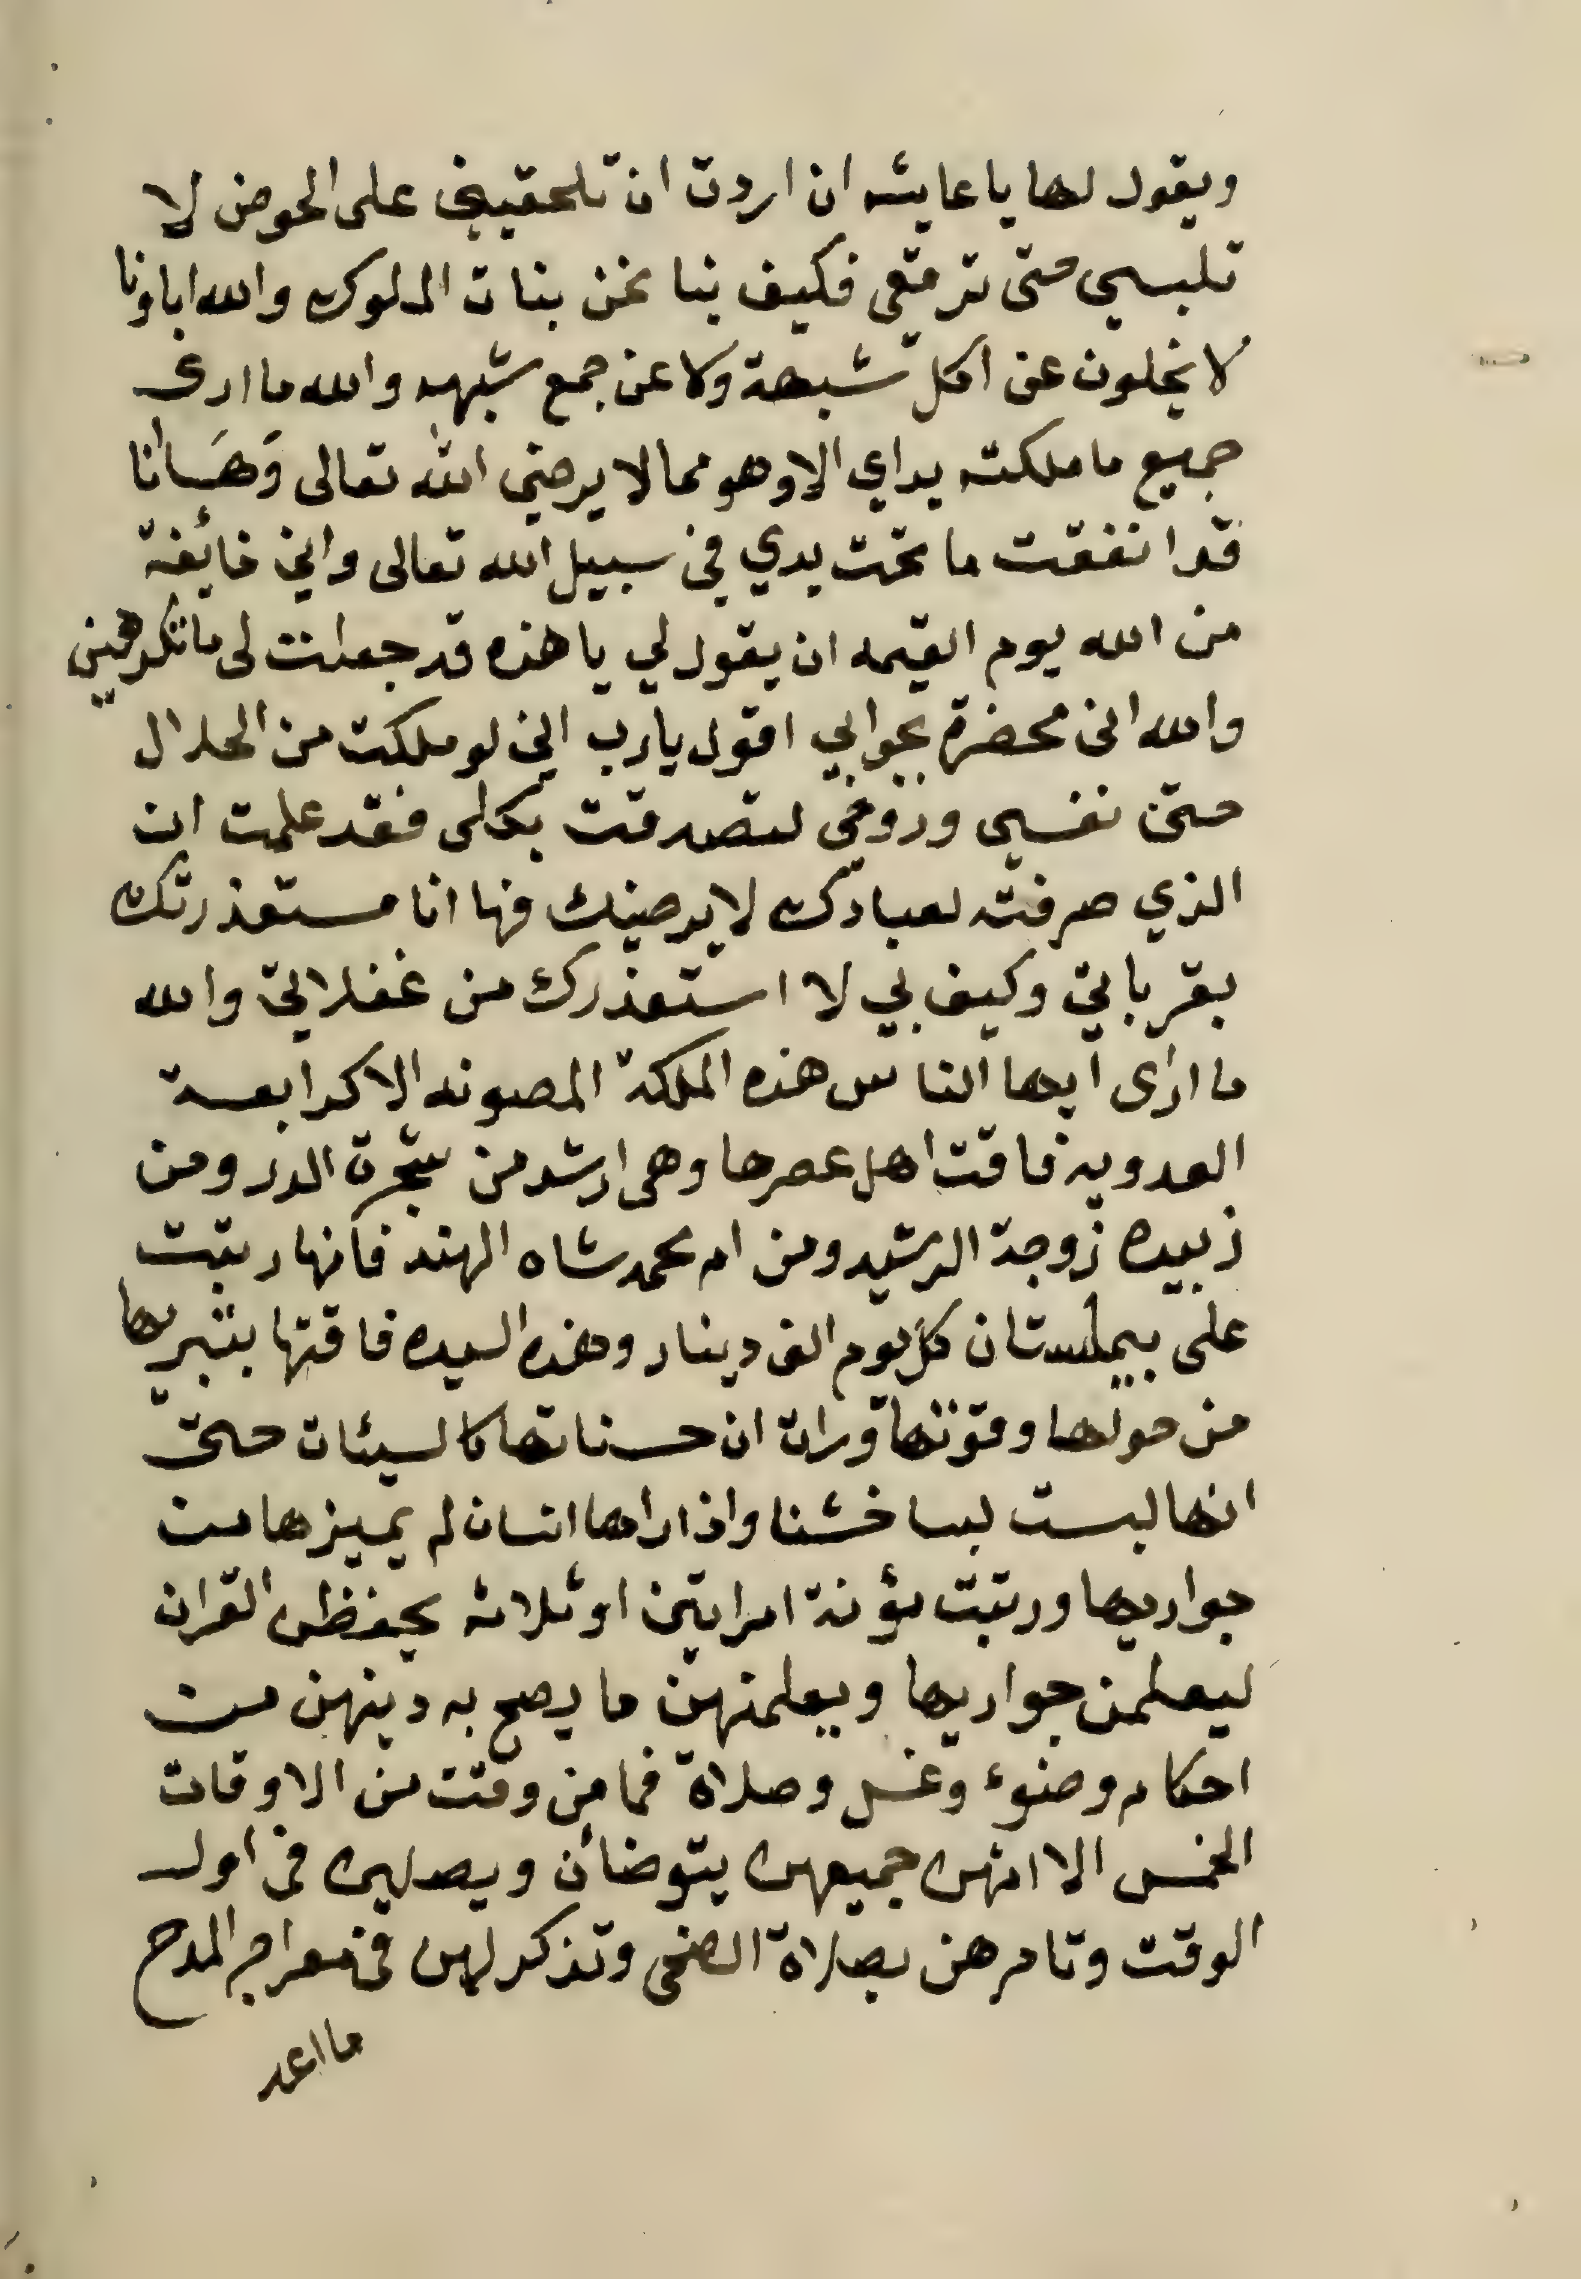 ويقول لها يا عايشه ان اردت ان تلحقيني على الحوض لا
تلبسي حتى ترقعي فكيف بنا نحن بنات الملوك والله اباونا
لا يخلون عن اكل شبهة ولا عن جمع شبهه والله ما ارى
جميع ما ملكته يداي الا وهو مما لا يرضي الله تعالى وَهَا انا
قد انفقت ما تحت يدي في سبيل الله تعالى واني خائفة
من الله يوم القيمه ان يقول لي يا هذه قد جعلت لي ما تكرهين
والله اني محضرة بجوابي اقول يا رب اني لو ملكت من الحلال
حتى نفسي وروحي لتصدقت بكلي فقد علمت ان
الذي صرفته لعبادك لا يرضيك فها انا مستعذرتك
بقرباتي وكيف بي لا استعذرك من غفلاتي والله
ما ارى ايها الناس هذه الملكة المصونه الا كرابعة
العدويه فاقت اهل عصرها وهي ارشد من شجرة الدر ومن
زبيده زوجة الرشيد ومن ام محمد شاه الهند فانها رتبت
على بيمارستان كل يوم الف دينار وهذه السيده فاقتها بتبريها
من حولها وقوتها ورات ان حسناتها كالسيئات حتى
انها لبست لبسا خشنا واذا راها انسان لم يميزها من
جواريها ورتبت مؤنة امراتين او ثلاثه يحفظن القران
ليعلمن جواريها ويعلمنهن ما يصح به دينهن من
احكام وضوء وغسل وصلاة فما من وقت من الاوقات
الخمس الا انهن جميعهن يتوضأن ويصلين في اول
الوقت وتامرهن بصلاة الضحى وتذكر لهن في معراج المدح
ما اعد